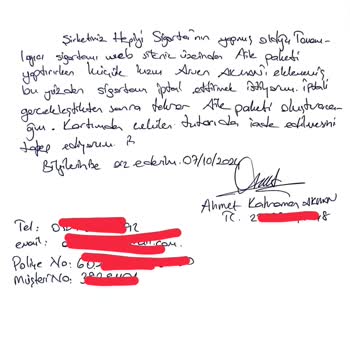 Şirketiniz Hepiyi Sigorta'nın yapmış olduğu Tamam-
layıcı sigortamı web siteniz üzerinden Aile paketi
yaptırırken küçük kızım Arven AKMAN'ı eklememiş
bu yüzden sigortamı iptal ettirmek istiyorum. iptali
gerçekleştikten sonra tekrar Aile paketi oluşturaca-
ğım. Kartımdan çekilen tutarıda iade edilmesini
talep ediyorum.
Bilgilerinize arz ederim. 07/10/2024
Ahmet Kahraman AKMAN
TC. 2 8
Tel: 0 72
email: .com.
Poliçe No: 60 0
Müşteri No: